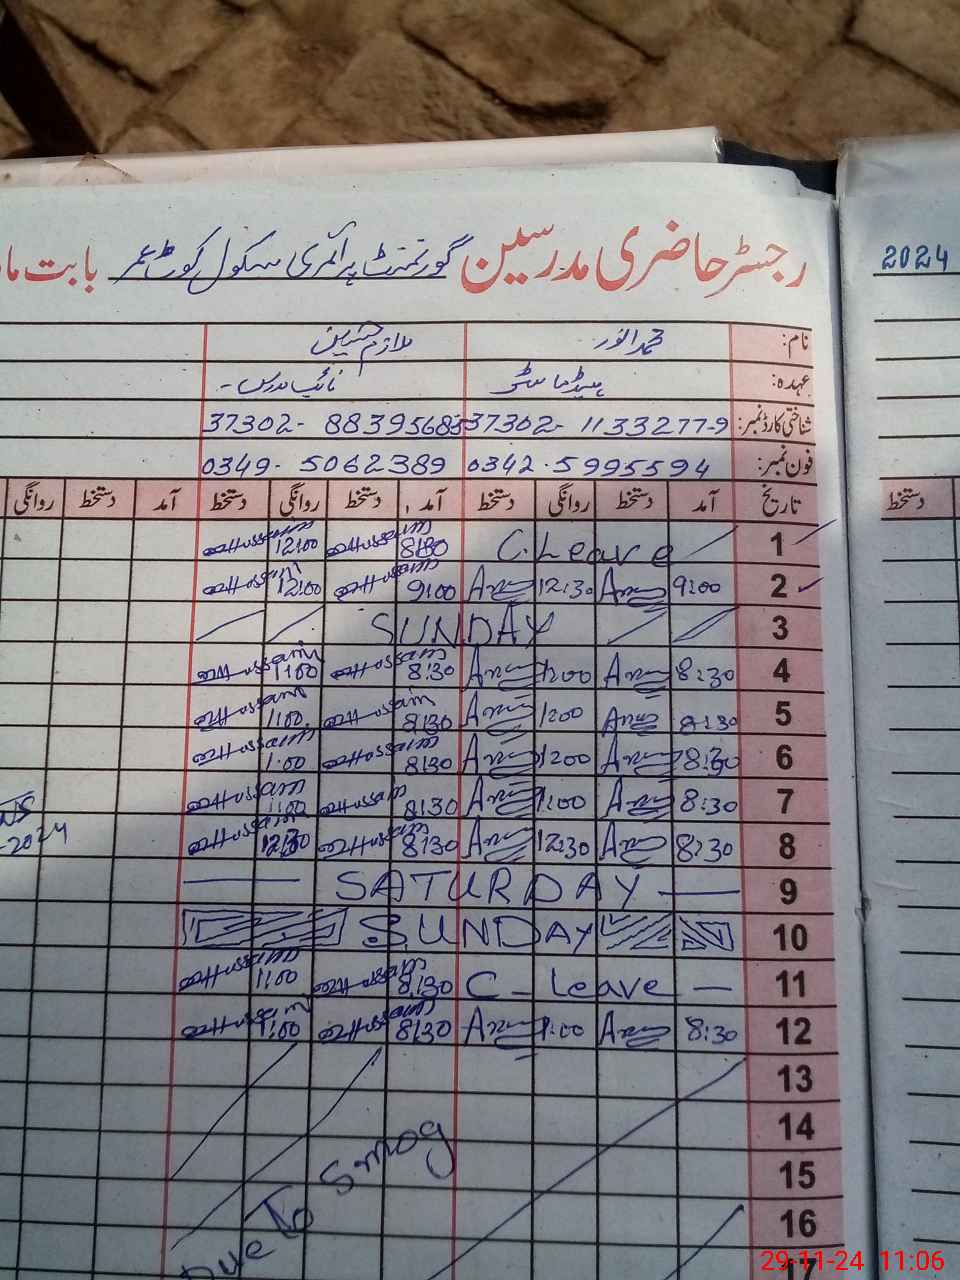 رجسٹر حاضری مدرسین گورنمنٹ پرائمری سکول کوٹ عمر بابت
2024
نام: محمد انور ملازم حسین
عہدہ: ہیڈ ماسٹر نائب مدرس
شناختی کارڈ نمبر: 37302-1133277-9 37302-8839568
فون نمبر: 0342.5995594 0349-5062389
تاریخ آمد دستخط روانگی دستخط آمد دستخط روانگی دستخط آمد دستخط روانگی دستخط
1 C.Leave 8:30 Hussain 12:00 Hussain
2 9:00 12:30 9:00 Hussain 12:00 Hussain
3 SUNDAY
4 8:30 1:00 8:30 Hussain 1:00 Hussain
5 8:30 1:00 8:30 Hussain 1:00 Hussain
6 8:30 1:00 8:30 Hussain 1:00 Hussain
7 8:30 1:00 8:30 Hussain 1:00 Hussain
8 8:30 12:30 8:30 Hussain 12:30 Hussain
-2024
9 SATURDAY
10 SUNDAY
11 C-Leave 8:30 Hussain 1:00 Hussain
12 8:30 1:00 8:30 Hussain 1:00 Hussain
13
14
15
16
Due To Smog
29-11-24 11:06